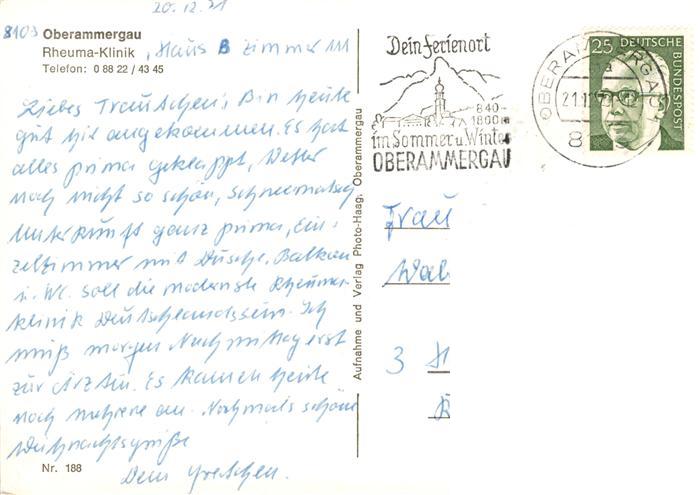 20.12.71
8103 Oberammergau
Rheuma-Klinik, Haus B Zimmer 111
Telefon: 0 88 22 / 43 45
Liebes Trautchen, Bin heute
gut hier angekommen. Es hat
alles prima geklappt, Wetter
noch nicht so schön, Schneematsch
Unterkunft ganz prima, Ein-
zelzimmer mit Dusche, Balkon
u. WC. soll die modernste Rheuma-
klinik Deutschlands sein. Ich
muß morgen Nachmittag erst
zur Ärztin. Es kamen heute
noch mehrere an. Nochmals schöne
Weihnachtsgrüße
Dein Gretchen.
Nr. 188
Aufnahme und Verlag Photo-Haag, Oberammergau
Dein Ferienort
840-
1800m
im Sommer u. Winter
OBERAMMERGAU
OBERAMMERGAU
21.12.71
8
25 DEUTSCHE
BUNDESPOST
Frau
Wal
3 H